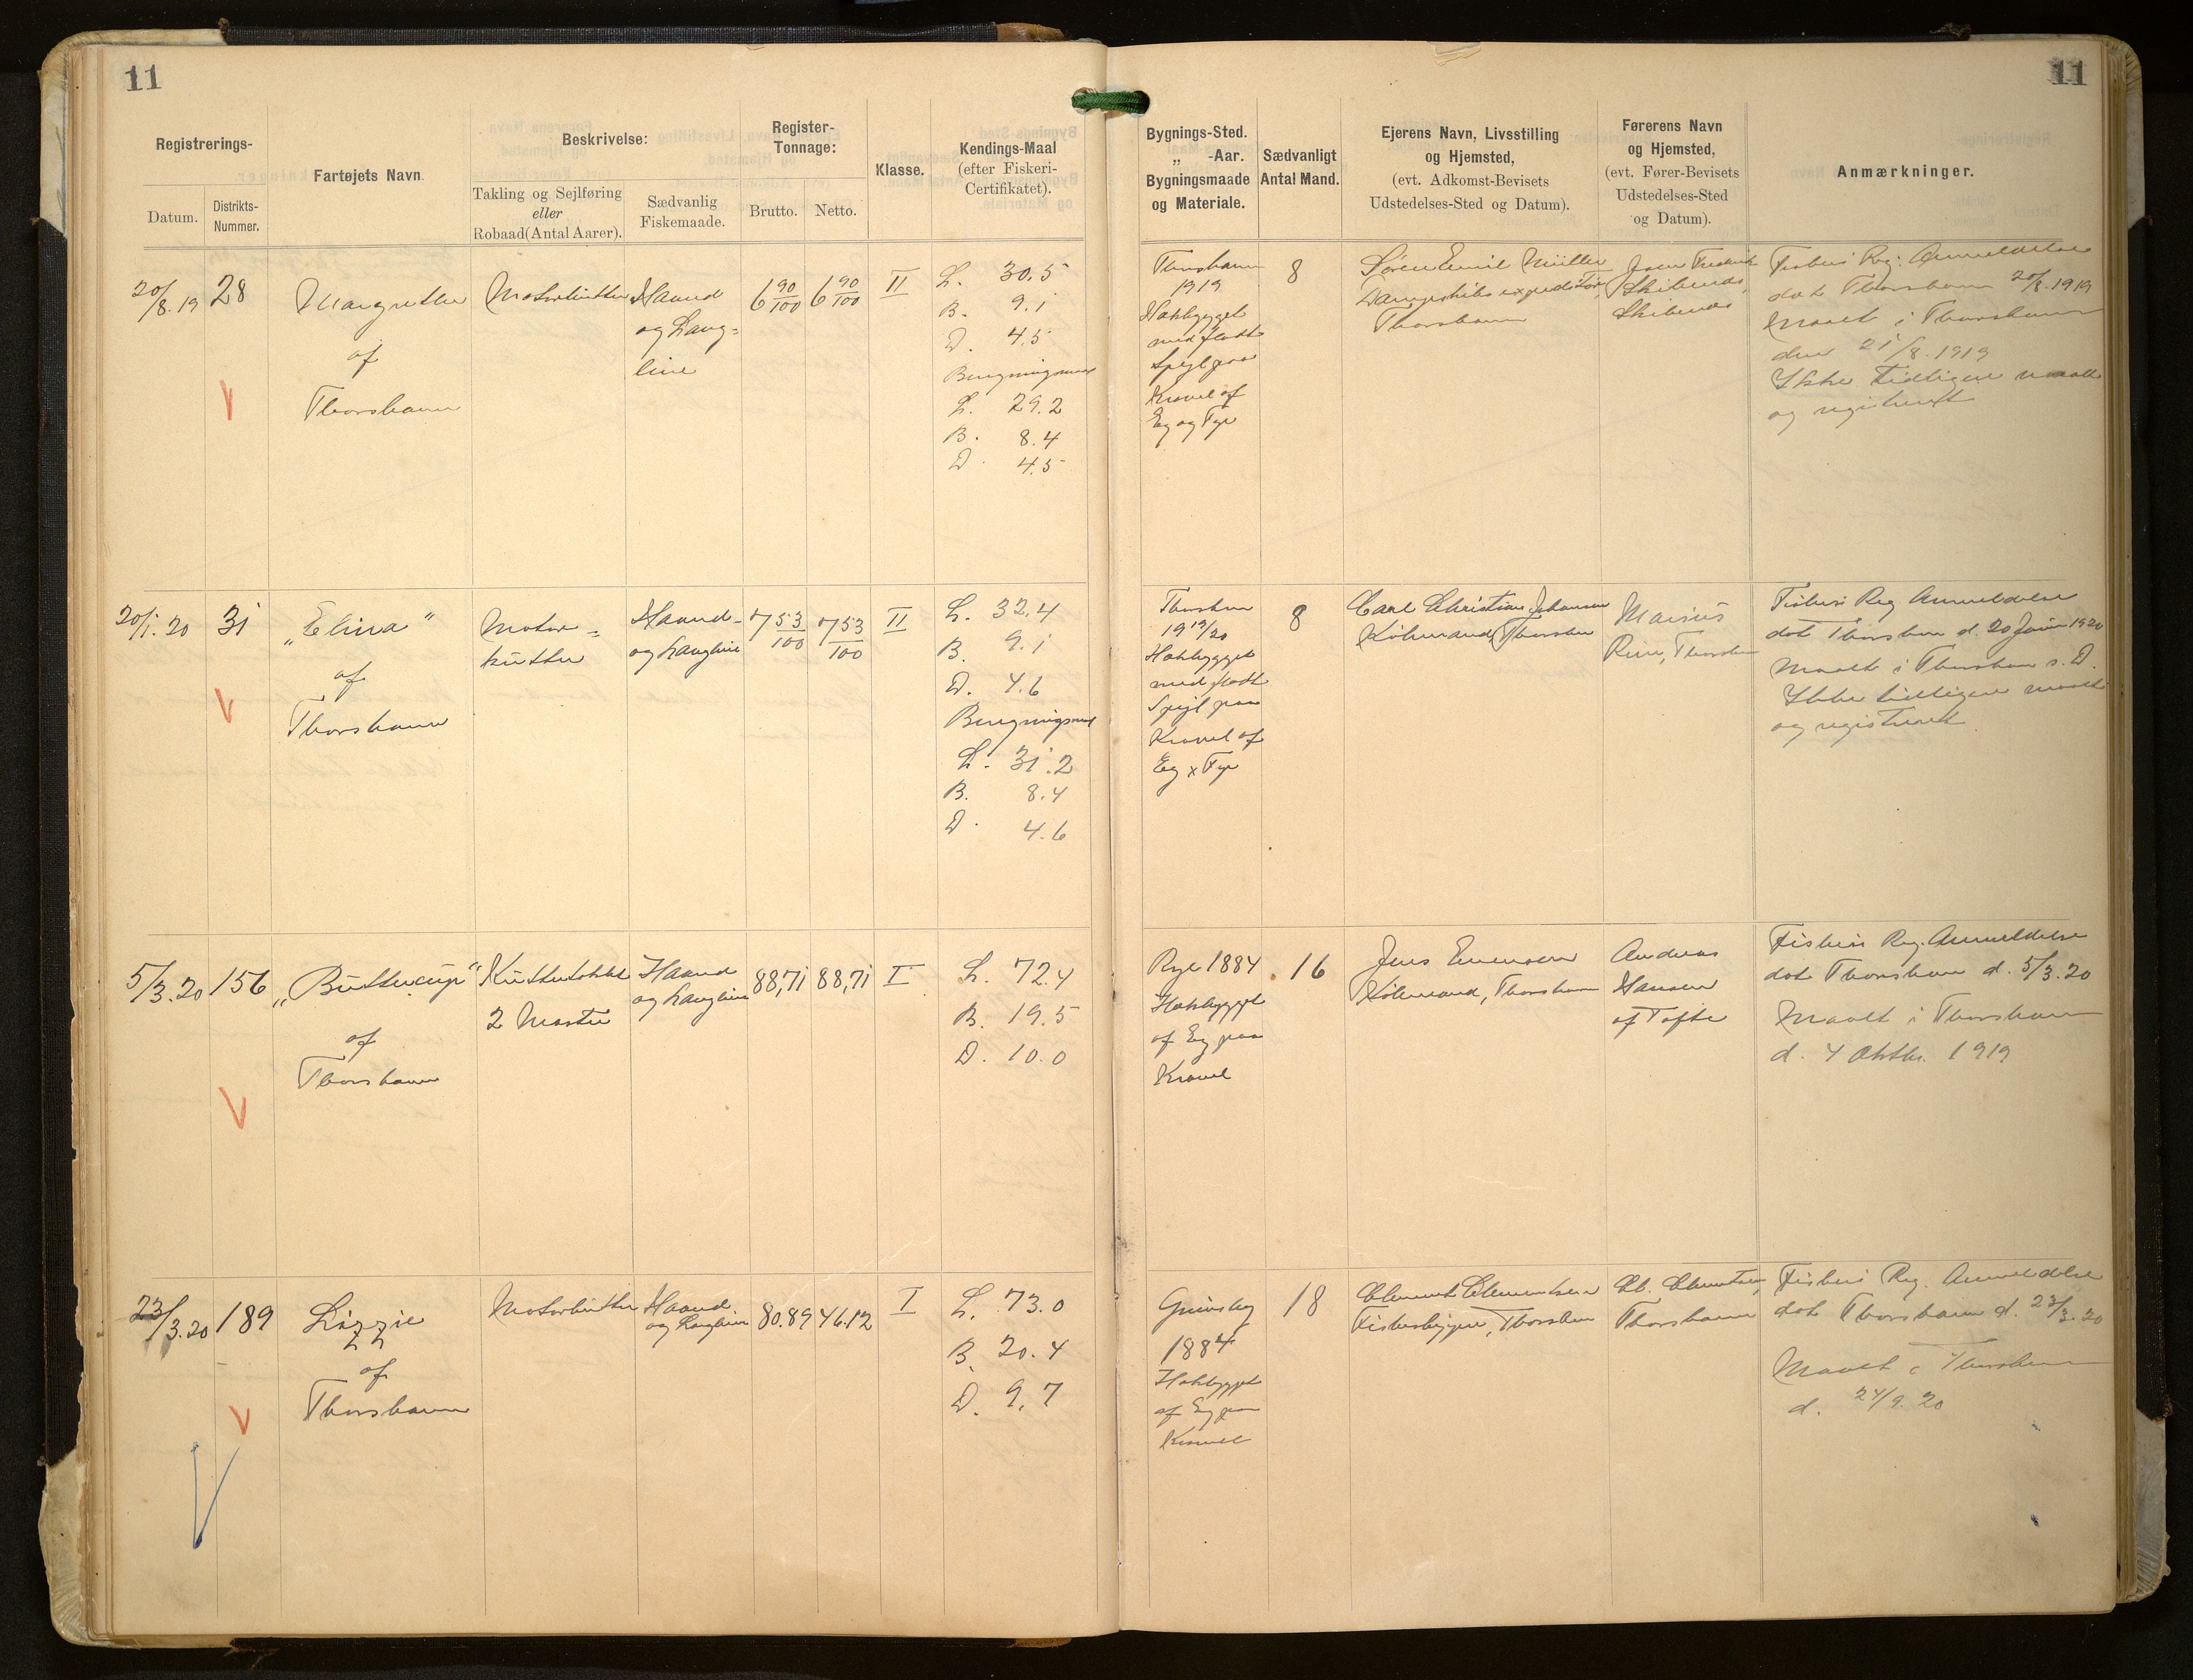 11
11
Registrerings-
Datum.
Distrikts-
Nummer.
Fartøjets Navn
Beskrivelse:
Takling og Sejlføring
eller
Robaad (Antal Aarer).
Sædvanlig
Fiskemaade.
Register-
Tonnage:
Brutto.
Netto.
Klasse.
Kendings-Maal
(efter Fiskeri-
Certifikatet).
Bygnings-Sted.
„ -Aar.
Bygningsmaade
og Materiale.
Sædvanligt
Antal Mand.
Ejerens Navn, Livsstilling
og Hjemsted,
(evt. Adkomst-Bevisets
Udstedelses-Sted og Datum).
Førerens Navn
og Hjemsted,
(evt. Fører-Bevisets
Udstedelses-Sted
og Datum).
Anmærkninger.
20/8.19
28
Margrethe
af
Thorshavn
Motorkutter
Haand
og Lang=
line
6 90/100
6 90/100
II
L. 30.5
B. 9.1
D. 4.5
L. 29.2
B. 8.4
D. 4.5
Thorshavn
1919
Hækbygget
med fladt
Spejl paa
Kravel af
Eg og Fyr
8
Søren Emil Müller
Thorshavn
Fiskeri Reg. Anmeldelse
dat Thorshavn 20/8.1919
Maalt i Thorshavn
den 21/8.1919
Ikke tidligere maalt
og registreret
20/1.20
31
„Elina“
af
Thorshavn
Motor=
kutter
Haand-
og Langline
7 53/100
7 53/100
II
L. 32.4
B. 9.1
D. 4.6
L. 31.2
B. 8.4
D. 4.6
Thorshvn
1919/20
Hækbygget
med fladt
Spejl paa
Kravel af
Eg x Fyr
8
Carl Christian Johansen
Købmand, Thorshvn
Marius
Thorshvn
Fiskeri Reg Anmeldelse
dat Thorshvn d. 20 Januar 1920
Maalt i Thorshavn s. D.
Ikke tidligere maalt
og registreret
5/3.20
156
„Buttercup“
af
Thorshavn
2 Master
Haand
og Langline
88,71
88,71
I
L. 72.4
B. 19.5
D. 10.0
Rye 1884
Hækbygget
af Eg paa
Kravel
16
Jens Evensen
Købmand, Thorshavn
Andreas
Hansen
af Tofte
Fiskeri Reg. Anmeldelse
dat Thorshavn d. 5/3.20
Maalt i Thorshavn
d. 4 Oktbr. 1919
23/3.20
189
Lizzie
af
Thorshavn
Motorkutter
Haand.
og Langline
80.89
46.12
I
L. 73.0
B. 20.4
D. 9.7
Grimsby
1884
Hækbygget
af Eg paa
Kravel
18
Clement Clementsen
Fiskeskipper, Thorshvn
Cl. Clemtsen,
Thorshavn
Fiskeri Reg. Anmeldelse
dat Thorshavn d. 23/3.20
Maalt i Thorshavn
d. 24/9.20